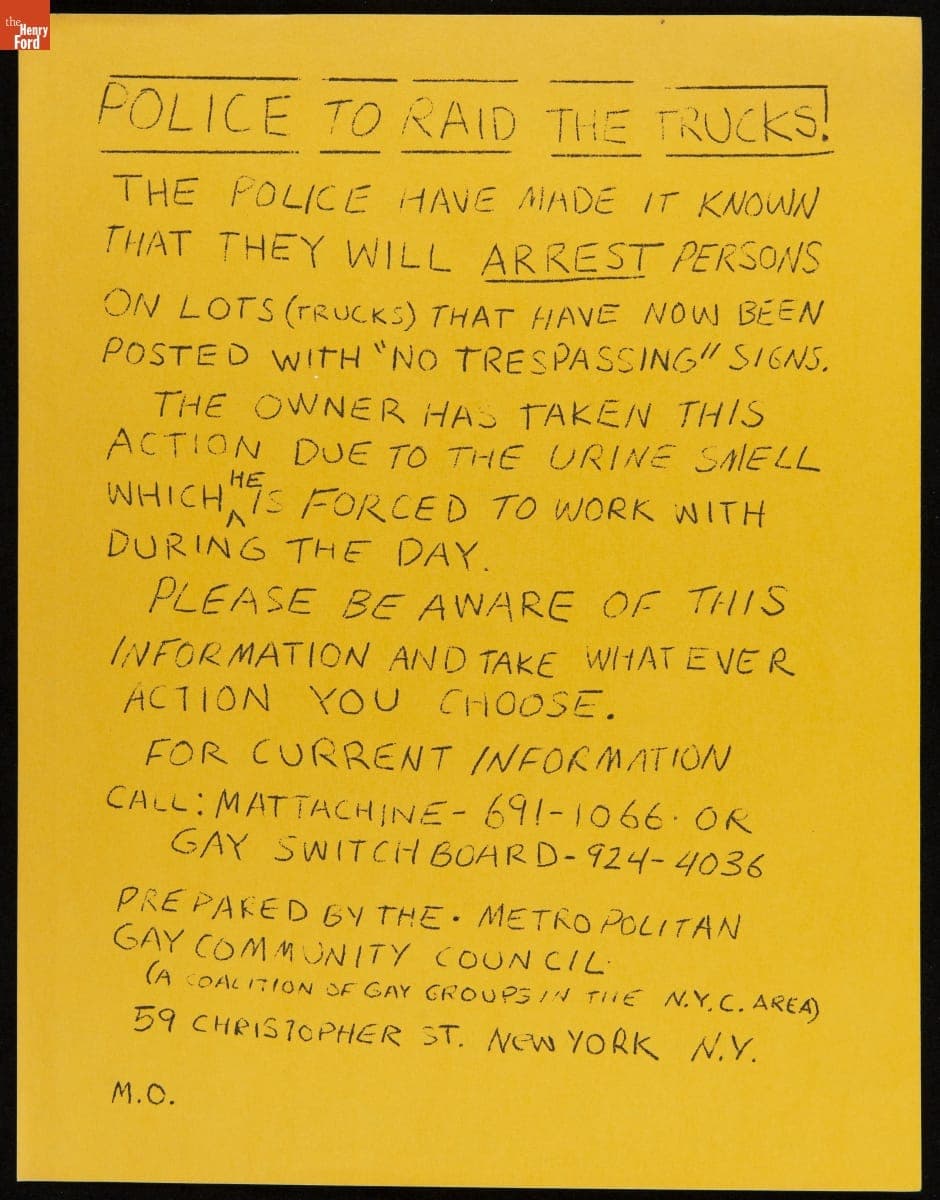 the
Henry
Ford
POLICE TO RAID THE TRUCKS!
THE POLICE HAVE MADE IT KNOWN
THAT THEY WILL ARREST PERSONS
ON LOTS (TRUCKS) THAT HAVE NOW BEEN
POSTED WITH "NO TRESPASSING" SIGNS.
THE OWNER HAS TAKEN THIS
ACTION DUE TO THE URINE SMELL
WHICH HE IS FORCED TO WORK WITH
DURING THE DAY.
PLEASE BE AWARE OF THIS
INFORMATION AND TAKE WHAT EVER
ACTION YOU CHOOSE.
FOR CURRENT INFORMATION
CALL: MATTACHINE - 691-1066. OR
GAY SWITCHBOARD - 924-4036
PREPARED BY THE. METROPOLITAN
GAY COMMUNITY COUNCIL.
(A COALITION OF GAY GROUPS IN THE N.Y.C. AREA)
59 CHRISTOPHER ST. NEW YORK N.Y.
M.O.